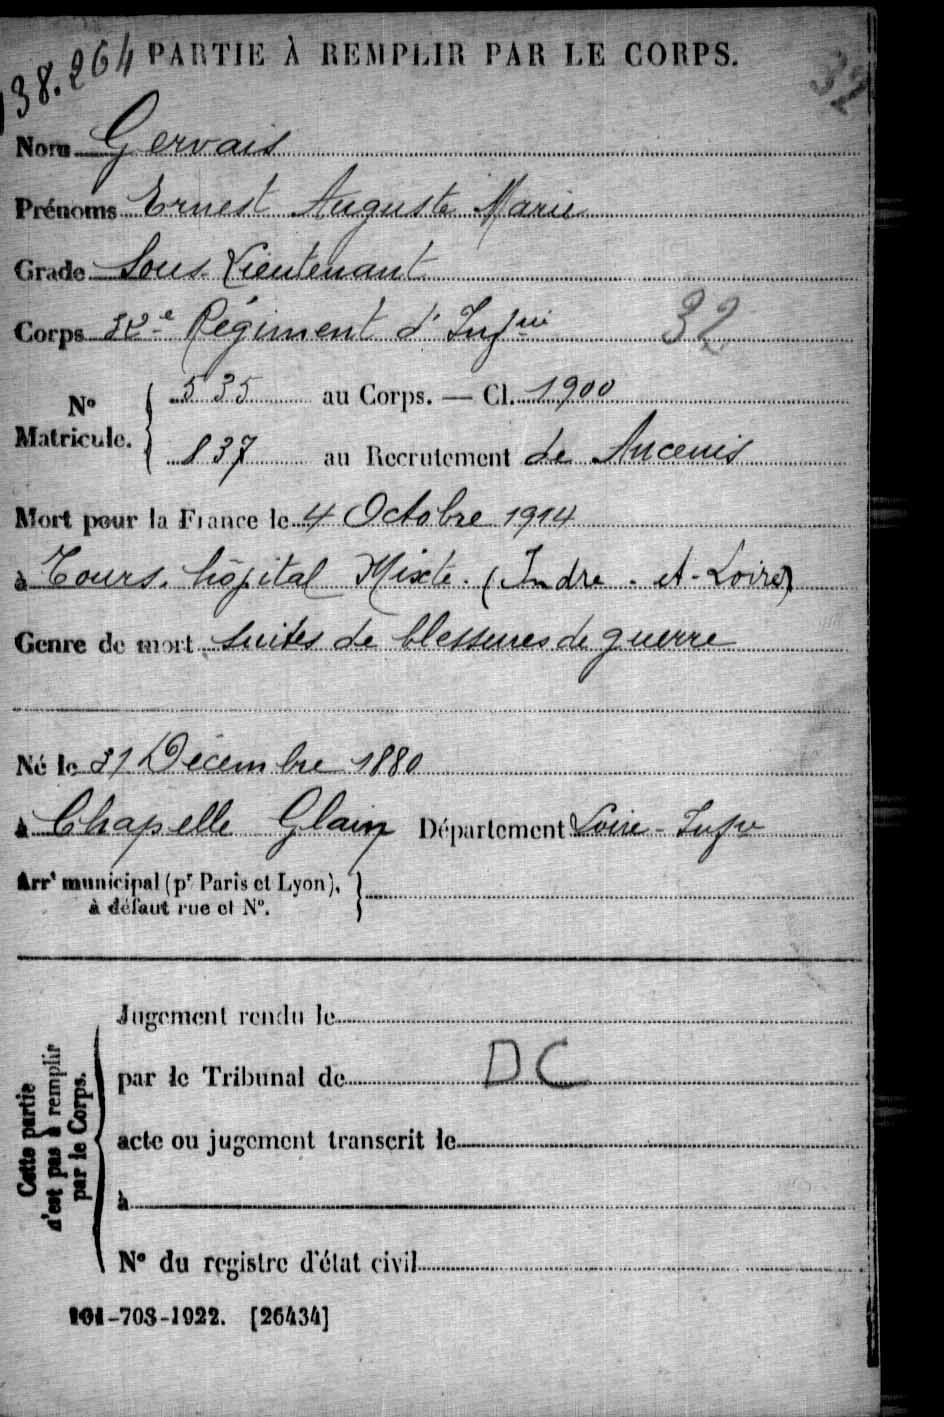 138.264 PARTIE À REMPLIR PAR LE CORPS. 32
Nom Gervais
Prénoms Ernest Auguste Marie
Grade Sous-Lieutenant
Corps 32e Régiment d'Infrie 32
No Matricule. { 535 au Corps. — Cl. 1900
837 au Recrutement de Ancenis
Mort pour la France le 4 Octobre 1914
à Tours. hôpital Mixte. (Indre-et-Loire)
Genre de mort suites de blessures de guerre
Né le 31 Décembre 1880
à Chapelle Glain Département Loire-Infre
Arrt municipal (pr Paris et Lyon), }
à défaut rue et No.
Cette partie n'est pas à remplir par le Corps.
Jugement rendu le
par le Tribunal de DC
acte ou jugement transcrit le
à
No du registre d'état civil
101-708-1922. [26434]